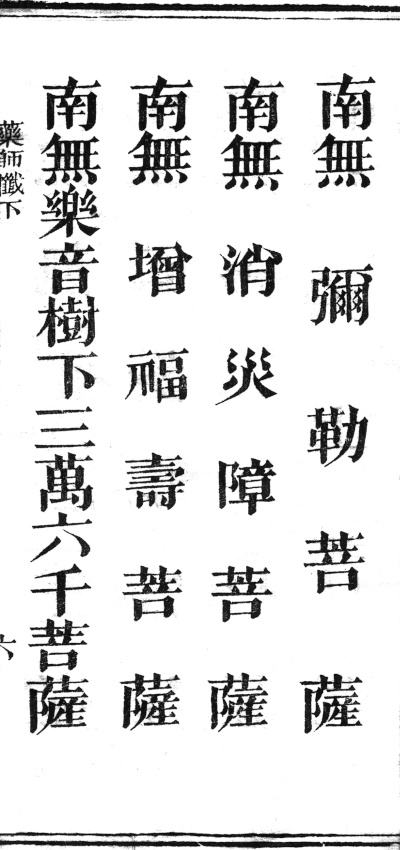 南無彌勒菩薩
南無消災障菩薩
南無增福壽菩薩
南無樂音樹下三萬六千菩薩
藥師懺下
六